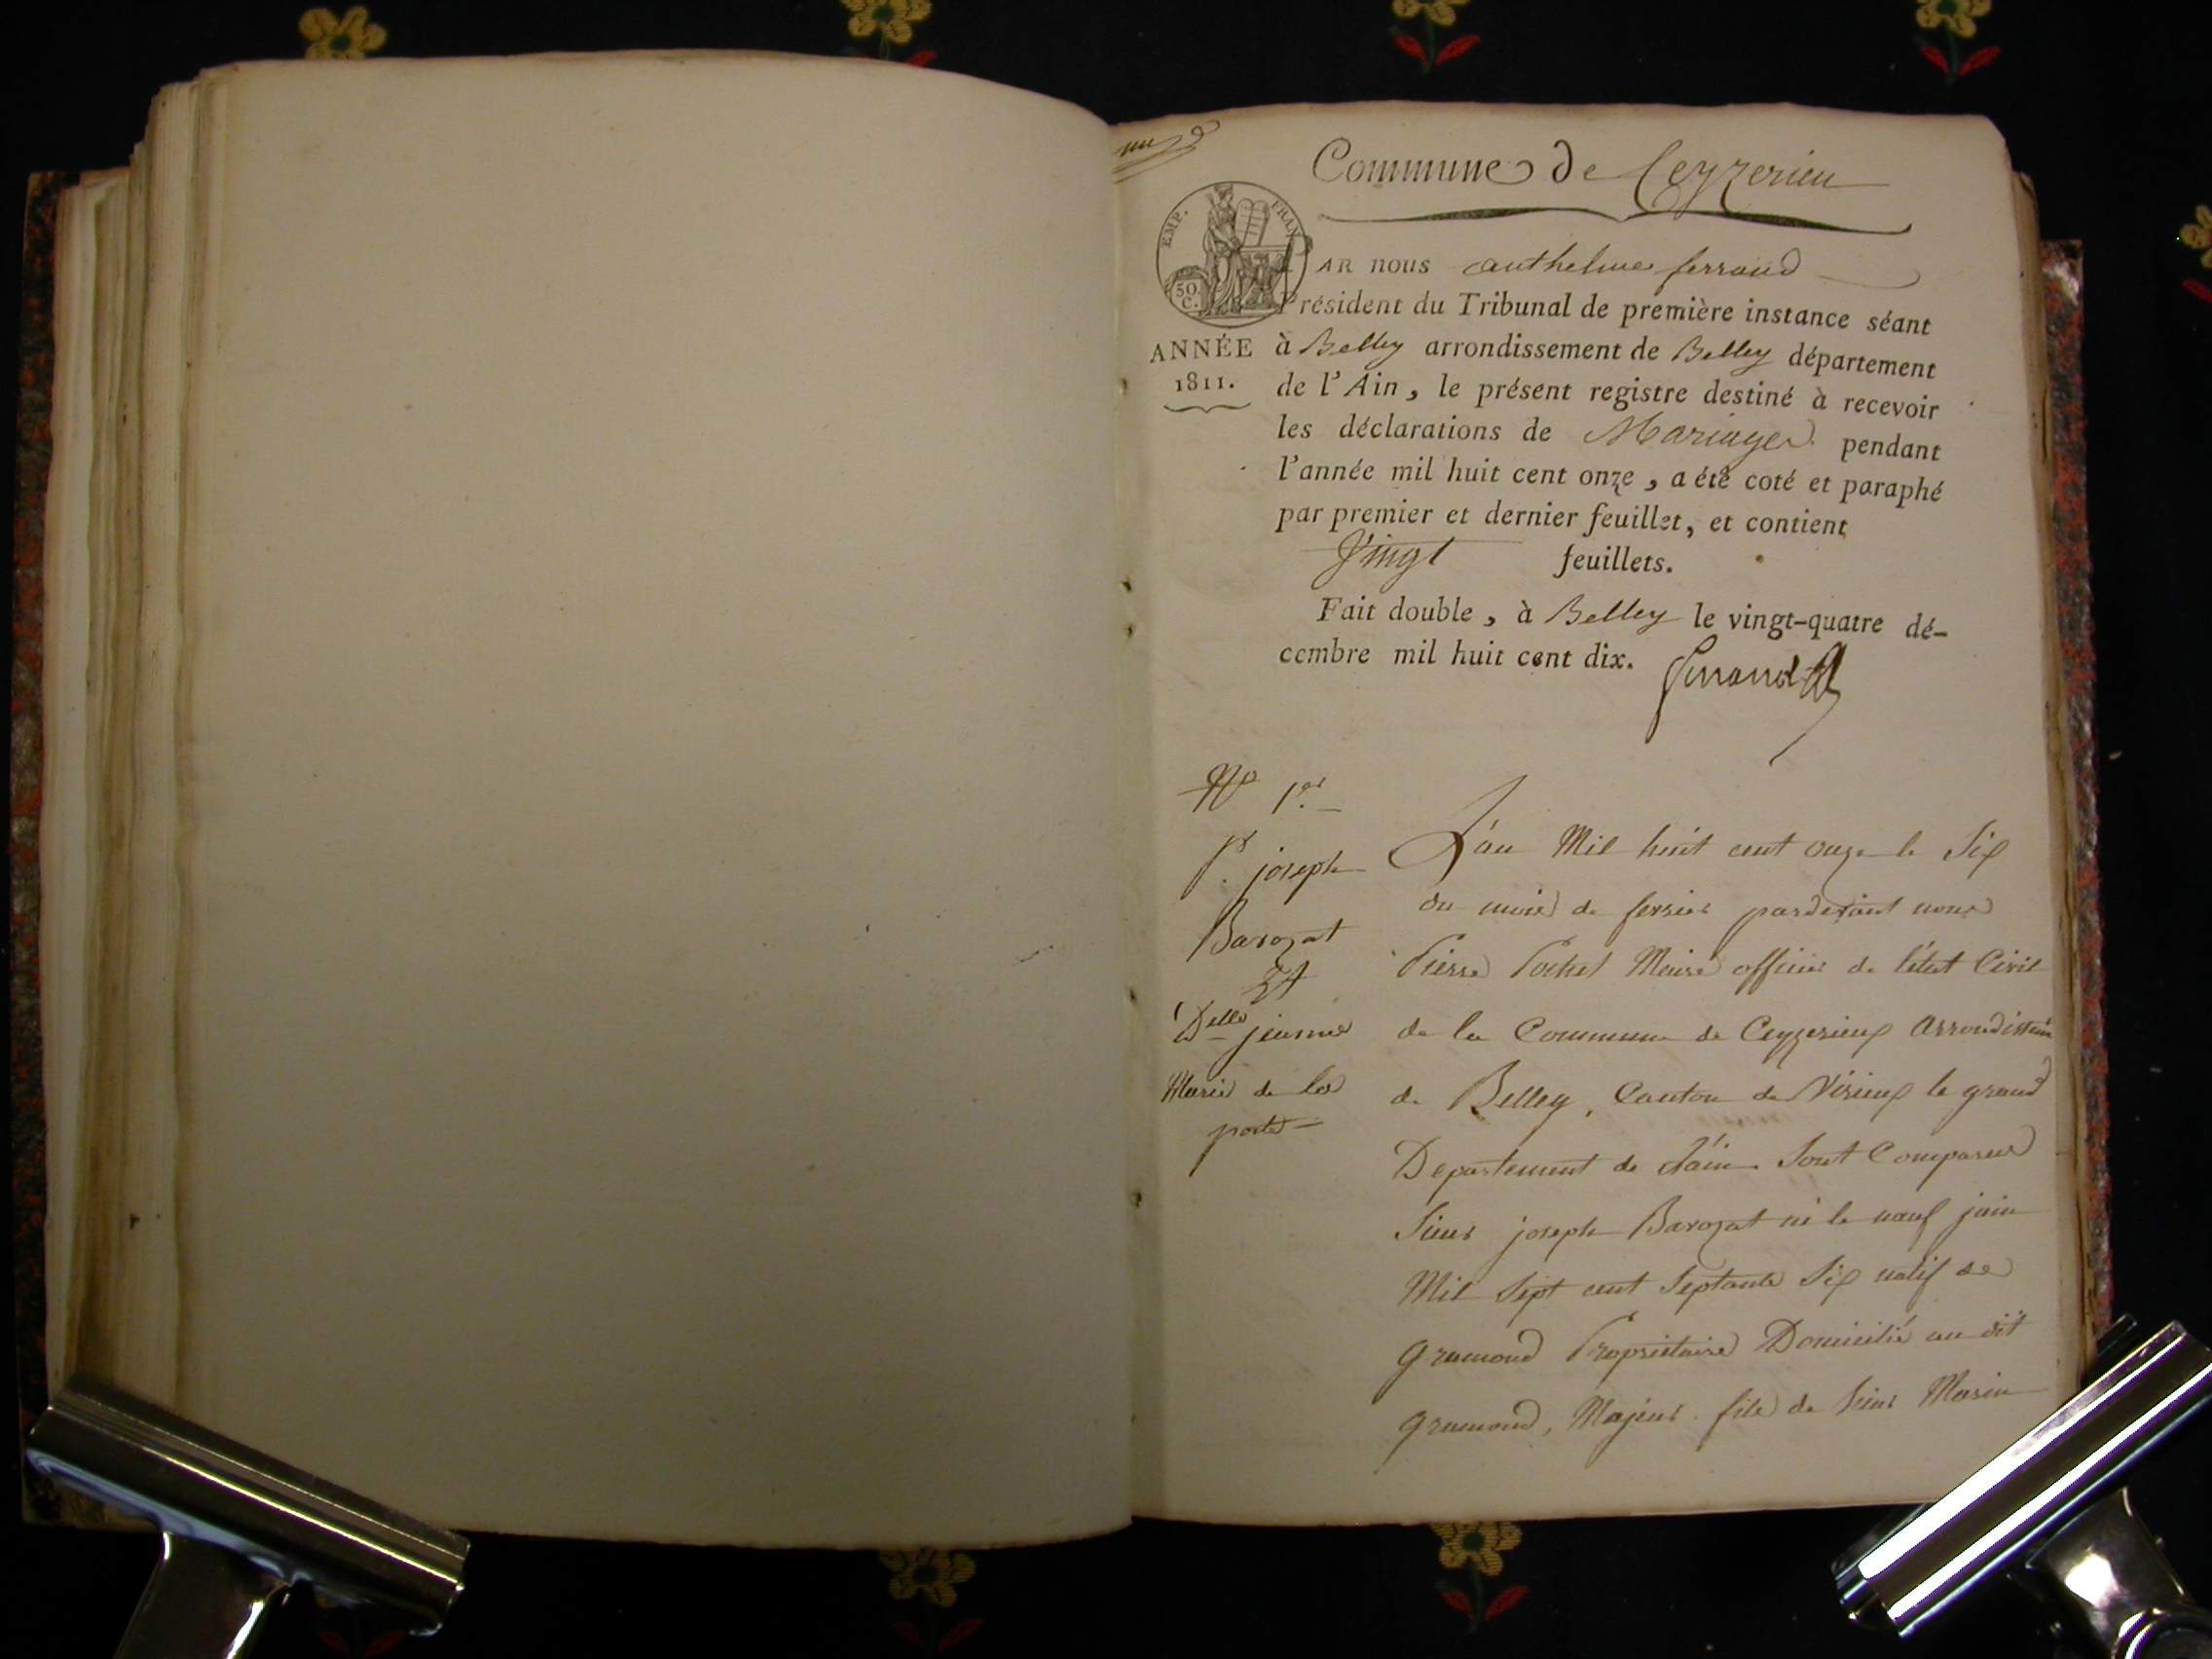 Commune de Ceyzerieu
EMP. FRAN
50 C.
PAR nous anthelme ferrand
Président du Tribunal de première instance séant
ANNÉE
1811.
à Belley arrondissement de Belley département
de l'Ain, le présent registre destiné à recevoir
les déclarations de Mariages pendant
l'année mil huit cent onze, a été coté et paraphé
par premier et dernier feuillet, et contient
Vingt feuillets.
Fait double, à Belley le vingt-quatre dé-
cembre mil huit cent dix.
Ferrand
No 1er
Sr joseph
Barozat
Et
Delle jeanne
Marie de la
porte
L'an Mil huit cent onze le Six
du mois de fevrier pardevant nous
Pierre Pochet Maire officier de l'état Civil
de la Commune de Ceyzerieux arrondissem
de Belley, Canton de Virieux le grand
Departement de l'ain Sont Comparus
Sieur joseph Barozat né le neuf juin
Mil Sept cent Septante Six natif de
gramond Propriétaire Domicilié au dit
gramond, Majeur fils de Sieur Marin